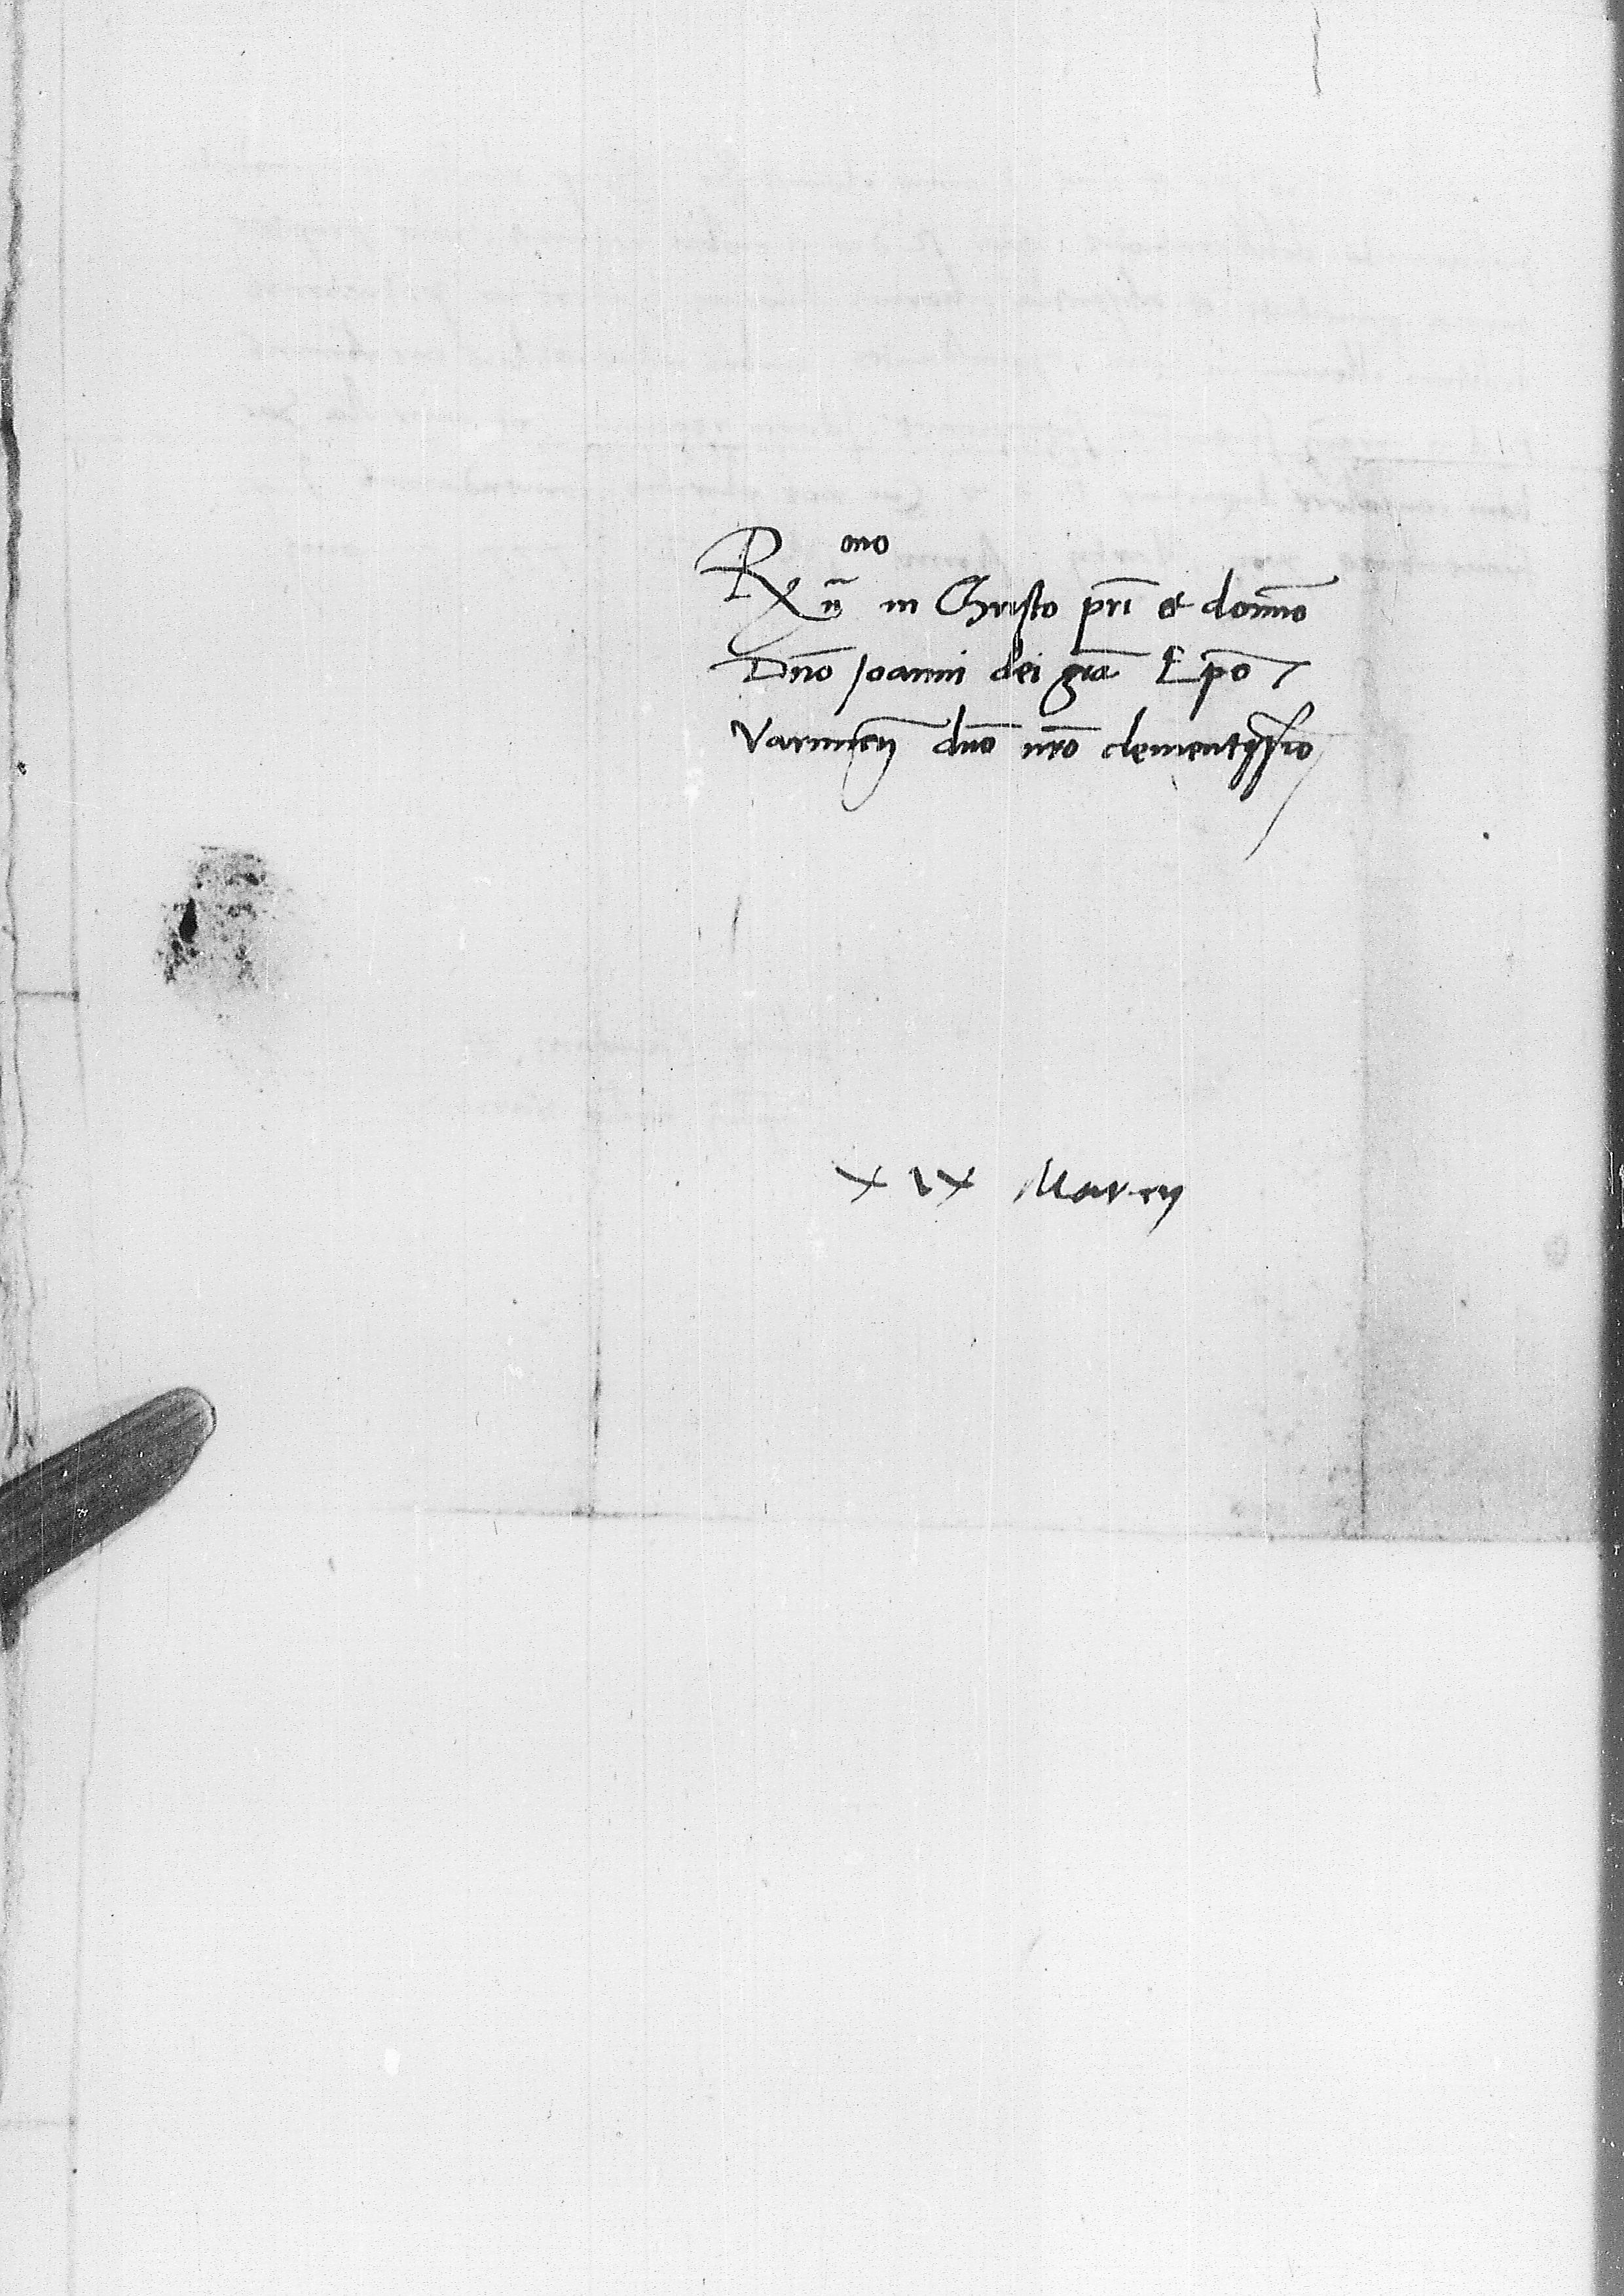 Rx̄n̄mo in Christo pr̄i et domīo
Dn̄o Joanni dei gr̄a Ep̄o
Varmien̄ dn̄o nr̄o clementissīo
XIX Marcy